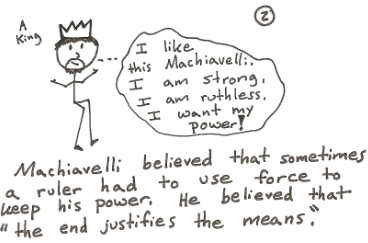 A
King
2
I like
this Machiavelli.
I am strong.
I am ruthless.
I want my
power!
Machiavelli believed that sometimes
a ruler had to use force to
keep his power. He believed that
"the end justifies the means."